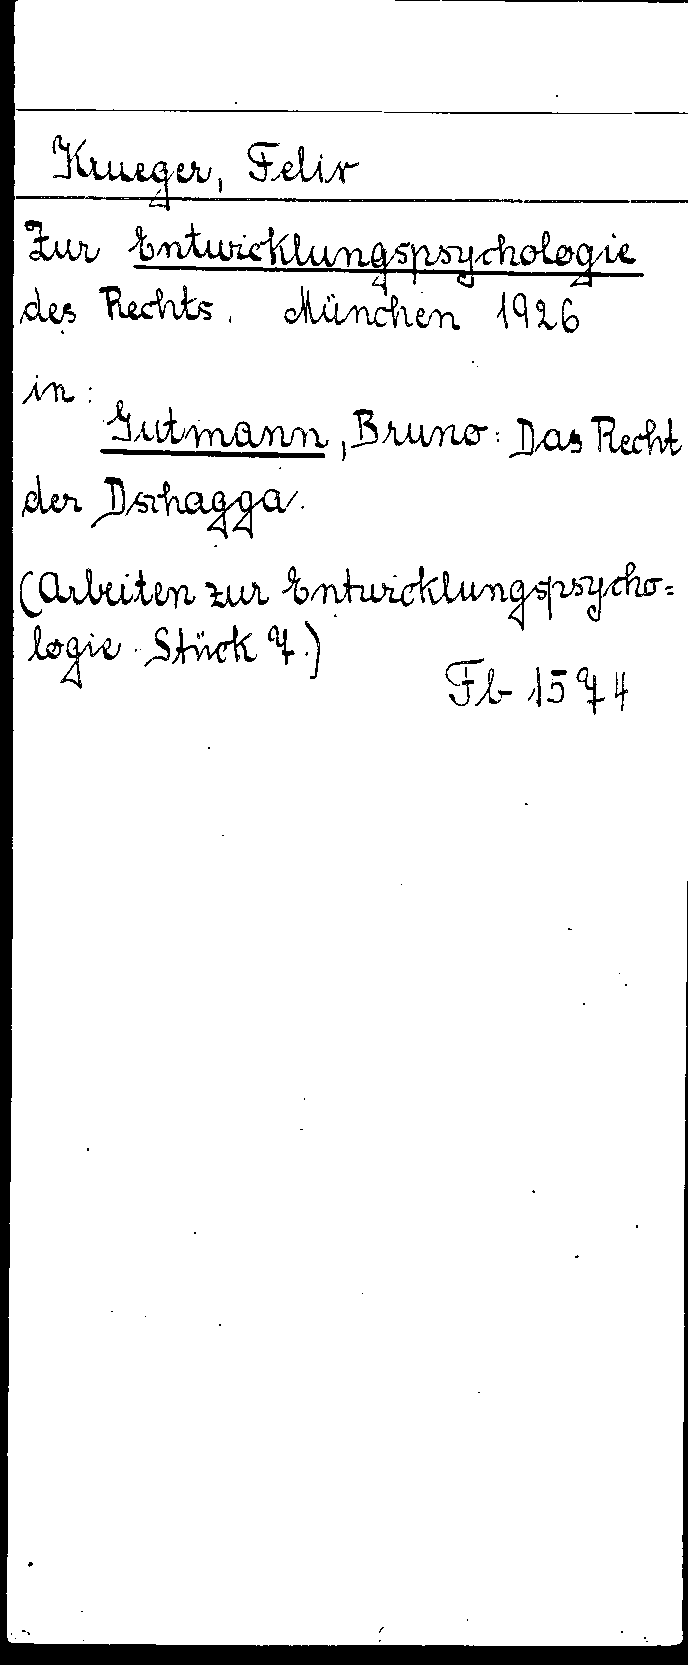 Krueger, Felix
Zur Entwicklungspsychologie
des Rechts. München 1926
in:
Gutmann, Bruno: Das Recht
der Dschagga.
(Arbeiten zur Entwicklungspsycho=
logie. Stück 7.)
Fb 1574